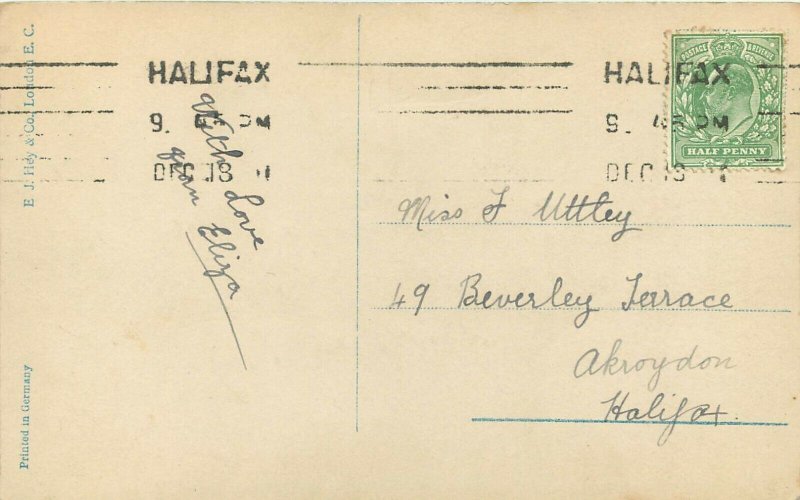 E. J. Hey & Co., London E. C.
Printed in Germany
HALIFAX
9. 45 PM
DEC 18
With Love
from Eliza
HALIFAX
9. 45 PM
DEC 18
POSTAGE & REVENUE
HALF PENNY
Miss F Uttley
49 Beverley Terrace
Akroydon
Halifax.